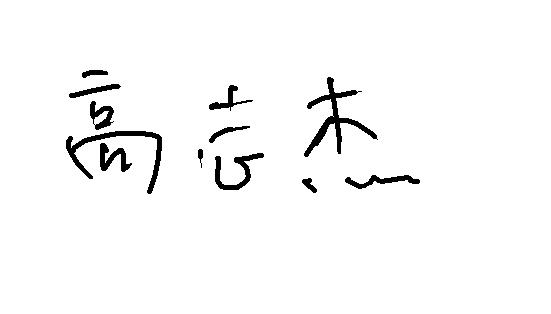 高志杰